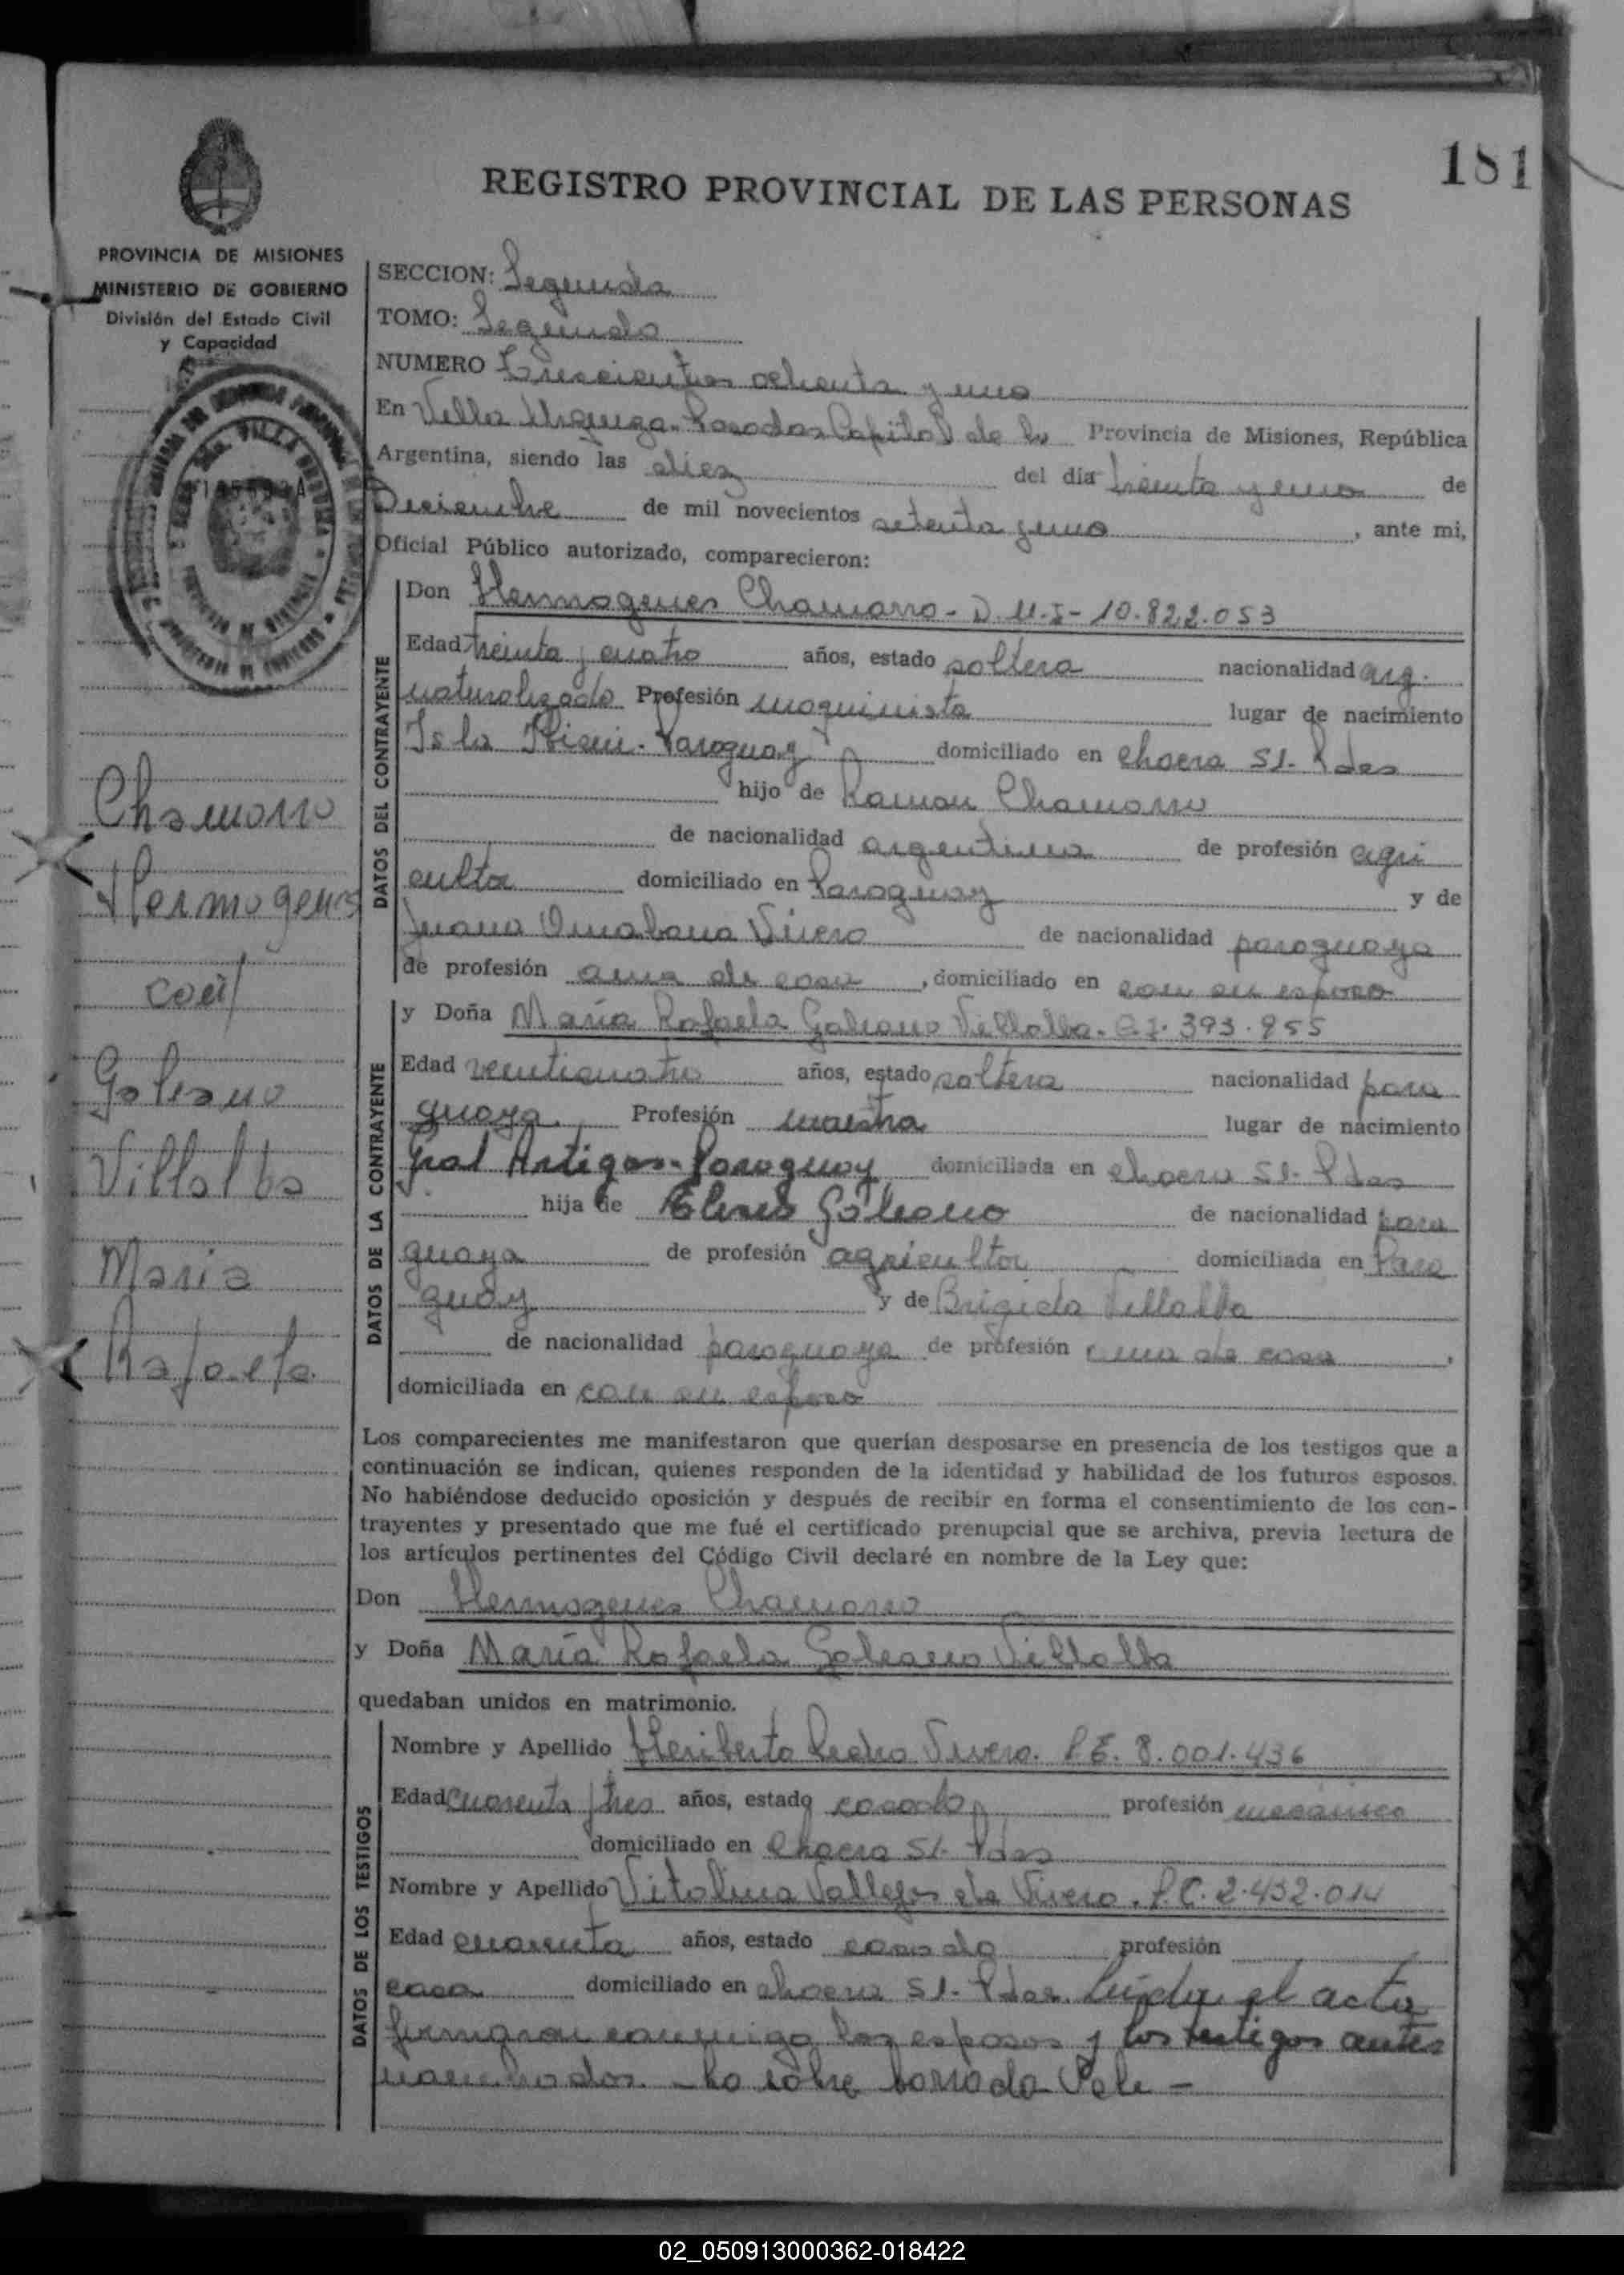 181
REGISTRO PROVINCIAL DE LAS PERSONAS
PROVINCIA DE MISIONES
MINISTERIO DE GOBIERNO
División del Estado Civil
y Capacidad
SECCION: Segunda
TOMO: Segundo
NUMERO Trescientos ochenta y uno
En Villa Urquiza-Posadas Capital de la Provincia de Misiones, República
Argentina, siendo las diez del día treinta y uno de
Diciembre de mil novecientos setenta y uno, ante mi,
Oficial Público autorizado, comparecieron:
DATOS DEL CONTRAYENTE
Don Hermogenes Chamorro - D.N.I - 10.822.053
Edad treinta y cuatro años, estado soltero nacionalidad arg.
naturalizado Profesión maquinista lugar de nacimiento
Isla Paraguay domiciliado en chacra 51- Pdas
hijo de Ramon Chamorro
de nacionalidad argentina de profesión agri
cultor domiciliado en Paraguay y de
Juana Vivero de nacionalidad paraguaya
de profesión ama de casa, domiciliado en con su esposo
Chamorro
Hermogenes
con
Galeano
Villalba
Maria
Rafaela
DATOS DE LA CONTRAYENTE
y Doña María Rafaela Galeano Villalba- C.I. 393.955
Edad veinticuatro años, estado soltera nacionalidad para
guaya Profesión maestra lugar de nacimiento
Gral Artigas-Paraguay domiciliada en chacra 51- Pdas
hija de Galeano de nacionalidad para
guaya de profesión agricultor domiciliada en Para
guay y de Brigida Villalba
de nacionalidad paraguaya de profesión ama de casa,
domiciliada en con su esposo
Los comparecientes me manifestaron que querían desposarse en presencia de los testigos que a
continuación se indican, quienes responden de la identidad y habilidad de los futuros esposos.
No habiéndose deducido oposición y después de recibir en forma el consentimiento de los con-
trayentes y presentado que me fué el certificado prenupcial que se archiva, previa lectura de
los artículos pertinentes del Código Civil declaré en nombre de la Ley que:
Don Hermogenes Chamorro
y Doña María Rafaela Galeano Villalba
quedaban unidos en matrimonio.
DATOS DE LOS TESTIGOS
Nombre y Apellido Heriberto Pedro Vivero. L.E. 8.001.436
Edad cuarenta y tres años, estado casado profesión mecánico
domiciliado en Chacra 51- Pdas
Nombre y Apellido Vitolina Vallejos de Vivero. L.C. 2.432.014
Edad cuarenta años, estado casada profesión
casa domiciliado en chacra 51- Pdas. Leída el acta
firmaron conmigo los esposos y los testigos antes
nombrados. -Lo sobre borrado Vale -
02_050913000362-018422